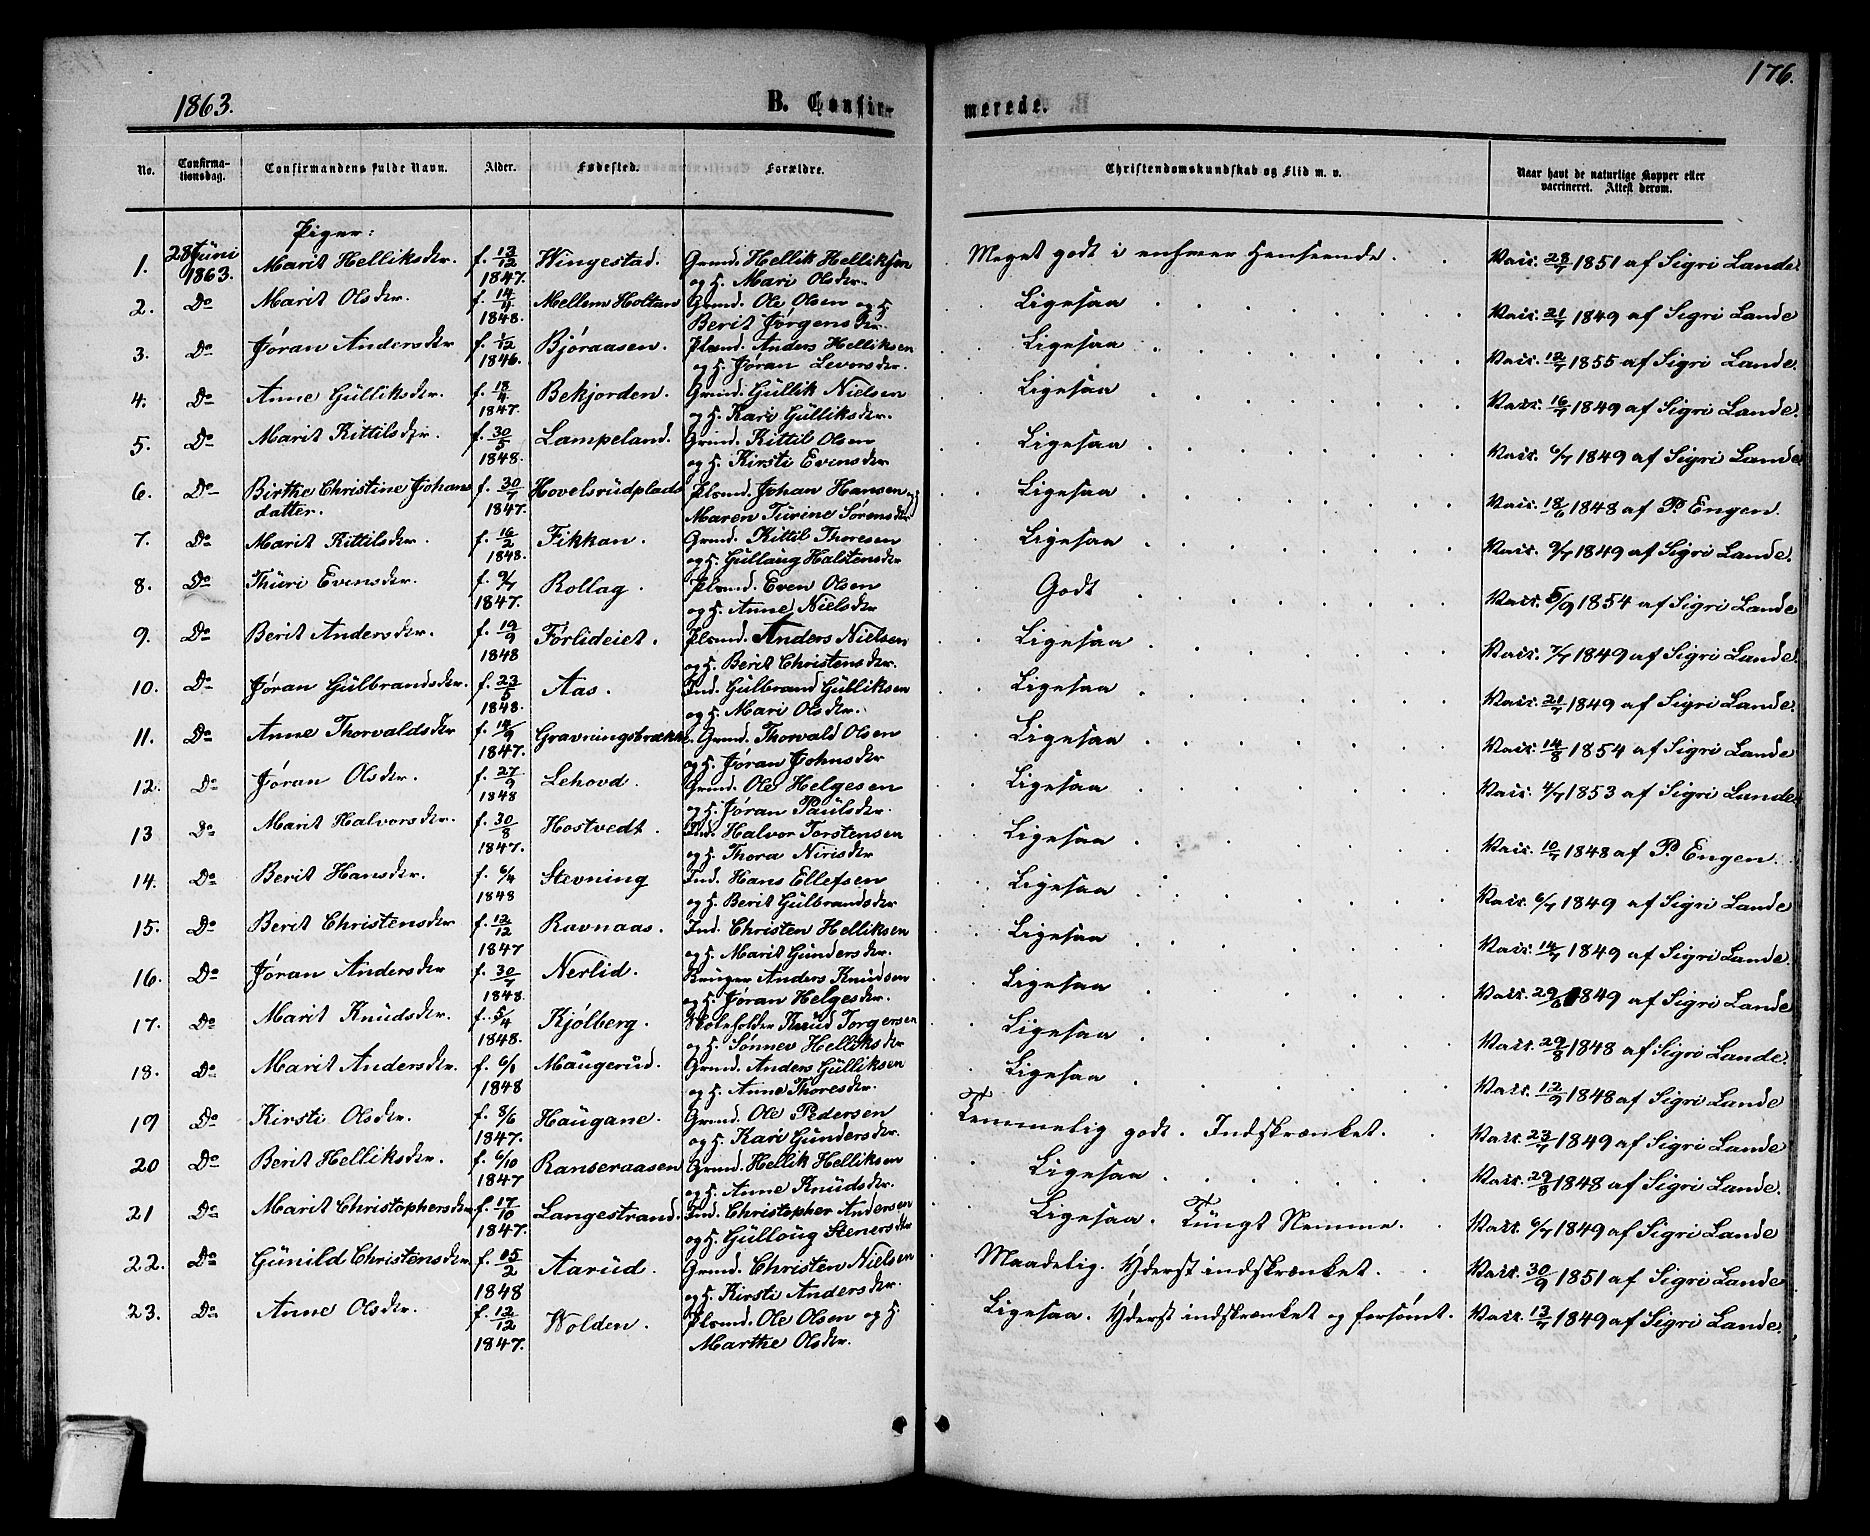 176.
1863.
B. Confirmerede.
No.
Confirmationsdag.
Confirmandens fulde Navn.
Alder.
Fødested.
Forældre.
Christendomskundskab og Flid m. v.
Naar havt de naturlige Kopper eller vaccineret. Attest derom.
Piger:
1. 28 Juni 1863. Marit Helliksdtr. f. 13/12 1847. Wingestad. Grmd. Hellik Helliksen og H. Mari Olsdtr. Meget godt i enhver Henseende. Vacc. 28/7 1851 af Sigri Lande.
2. Do Marit Olsdtr. f. 14/4 1848. Mellem Holtan Grmd. Ole Olsen og H Berit Jørgensdtr. Ligesaa Vacc. 21/7 1849 af Sigri Lande
3. Do Jøran Andersdtr f. 1/12 1846. Bjøraasen. Plsmd. Anders Helliksen og H. Jøran Leversdtr. Ligesaa Vacc. 12/7 1855 af Sigri Lande.
4. Do Anne Gulliksdtr. f. 18/4 1847. Bekjorden. Grmd. Gullik Nielsen og H. Kari Gulliksdtr. Ligesaa Vacc. 16/7 1849 af Sigri Lande.
5. Do Marit Kittilsdtr. f. 30/5 1848. Lampeland. Grmd. Kittil Olsen og H. Kirsti Evensdtr Ligesaa Vacc. 6/7 1849 af Sigri Lande
6. Do Birthe Christine Johansdatter. f. 30/7 1847. Hovelsrudplads Plsmd. Johan Hansen og Maren Turine Sørensdtr Ligesaa Vacc. 18/6 1848 af P. Engen.
7. Do Marit Kittilsdtr. f. 16/2 1848. Fikkan. Grmd. Kittil Thoresen og H. Gullaug Halstensdtr Ligesaa Vacc. 9/7 1849 af Sigri Lande.
8. Do Thuri Evensdtr. f. 9/7 1847. Rollag. Plsmd. Even Olsen og H. Anne Nielsdtr Godt Vacc. 5/9 1854 af Sigri Lande
9. Do Berit Andersdtr. f. 19/9 1848 Forlideiet. Plsmd. Anders Nielsen og H. Berit Christensdtr. Ligesaa Vacc. 7/7 1849 af Sigri Lande.
10. Do Jøran Gulbrandsdtr. f. 23/5 1848. Aas. Ind. Gulbrand Gulliksen og H. Mari Olsdtr. Ligesaa Vacc. 21/7 1849 af Sigri Lande.
11. Do Anne Thorvaldsdtr f. 14/9 1847. Gravningsbrække. Grmd. Thorvald Olsen og H. Jøran Johnsdtr Ligesaa Vacc. 14/8 1854 af Sigri Lande
12. Do Jøran Olsdtr. f. 27/9 1848 Lehovd. Grmd. Ole Helgesen og H. Jøran Paulsdtr. Ligesaa Vacc. 4/7 1853 af Sigri Lande.
13 Do Marit Halvorsdtr. f. 30/8 1847. Hostvedt. Ind. Halvor Torstensen og H. Thora Nirisdtr Ligesaa Vacc. 10/7 1848 af P. Engen.
14. Do Berit Hansdtr. f. 6/4 1848 Stevning Ind. Hans Ellefsen og H. Berit Gulbrandsdtr. Ligesaa Vacc. 6/7 1849 af Sigri Lande
15. Do Berit Christensdtr f. 12/12 1847 Ravnaas. Ind. Christen Helliksen og H. Marit Gundersdtr. Ligesaa Vacc. 14/7 1849 af Sigri Lande.
16. Do Jøran Andersdtr f. 30/7 1848. Nerlid. Bruger Anders Knudsen og H. Jøran Helgesdtr. Ligesaa Vacc. 29/8 1849 af Sigri Lande
17. Do Marit Knudsdtr. f. 5/4 1848. Kjølberg. Skoleholder Knud Torgersen og H. Sønnev Helliksdtr Ligesaa Vacc. 29/8 1848 af Sigri Lande.
18. Do Marit Andersdtr. f. 6/1 1848 Maugerud. Grmd. Anders Gulliksen og H. Anne Thoresdtr. Ligesaa Vacc. 12/9 1848 af Sigri Lande
19 Do Kirsti Olsdtr. f. 8/6 1847. Haugane. Grmd. Ole Pedersen og H. Kari Gundersdtr. Temmelig godt. Indskrænket. Vacc. 23/7 1849 af Sigri Lande
20 Do Berit Helliksdtr. f. 6/10 1847 Ranseraasen Grmd. Hellik Helliksen og H. Anne Knudsdtr. Ligesaa Vacc. 29/8 1848 af Sigri Lande.
21 Do Marit Christophersdtr f. 17/10 1847. Langestrand. Ind. Christopher Andersen og H. Gulloug Stenersdtr Ligesaa. Tungt Nemme. Vacc. 6/7 1849 af Sigri Lande
22. Do Gunild Christensdtr. f. 15/2 1848 Aarud. Grmd. Christen Nielsen og H. Kirsti Andersdtr. Maadelig. Yderst indskrænket. Vacc. 30/9 1851 af Sigri Lande
23. Do Anne Olsdtr. f. 12/12 1847. Wolden. Plsmd. Ole Olsen og H Marthe Olsdtr. Ligesaa. Yderst indskrænket og forsømt. Vacc. 13/7 1849 af Sigri Lande.